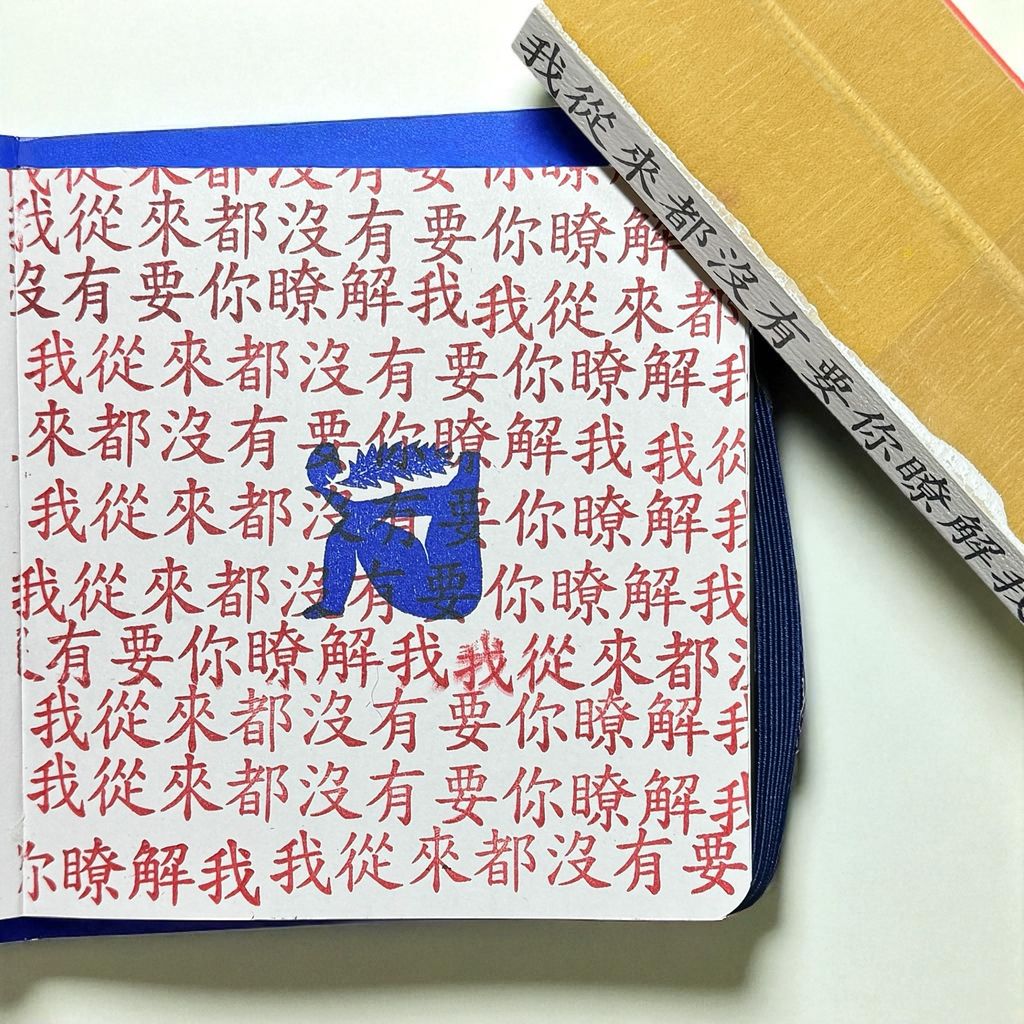 我從來都沒有要你瞭解我
我從來都沒有要你瞭
我從來都沒有要你瞭解
沒有要你瞭解我我從來都
我從來都沒有要你瞭解我
來都沒有要你瞭解我我從
我從來都沒有要你瞭解我
我從來都沒有要你瞭解我
有要你瞭解我我從來都沒
我從來都沒有要你瞭解我
我從來都沒有要你瞭解我
你瞭解我我從來都沒有要